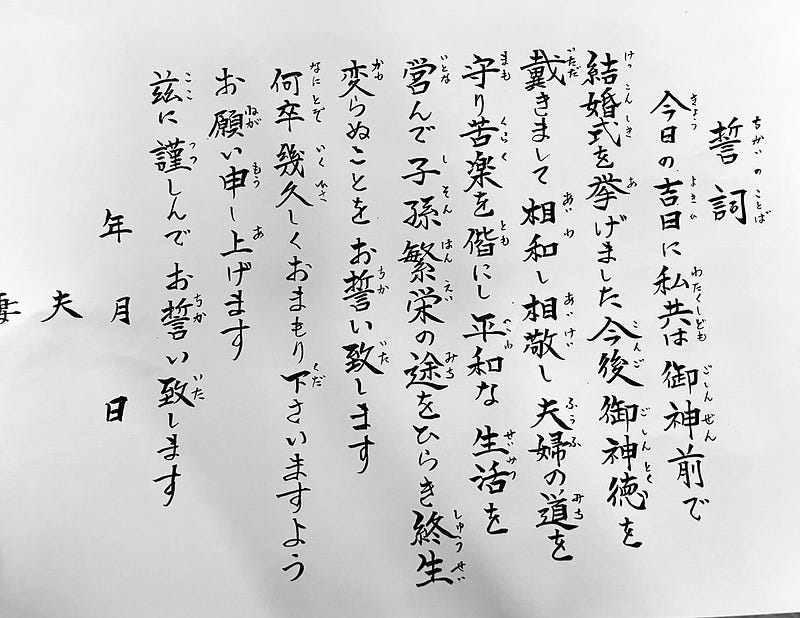 誓詞
今日の吉日に私共は御神前で
結婚式を挙げました今後御神徳を
戴きまして相和し相敬し夫婦の道を
守り苦楽を偕にし平和な生活を
営んで子孫繁栄の途をひらき終生
変らぬことをお誓い致します
何卒幾久しくおまもり下さいますよう
お願い申し上げます
茲に謹しんでお誓い致します
年月日
夫
妻